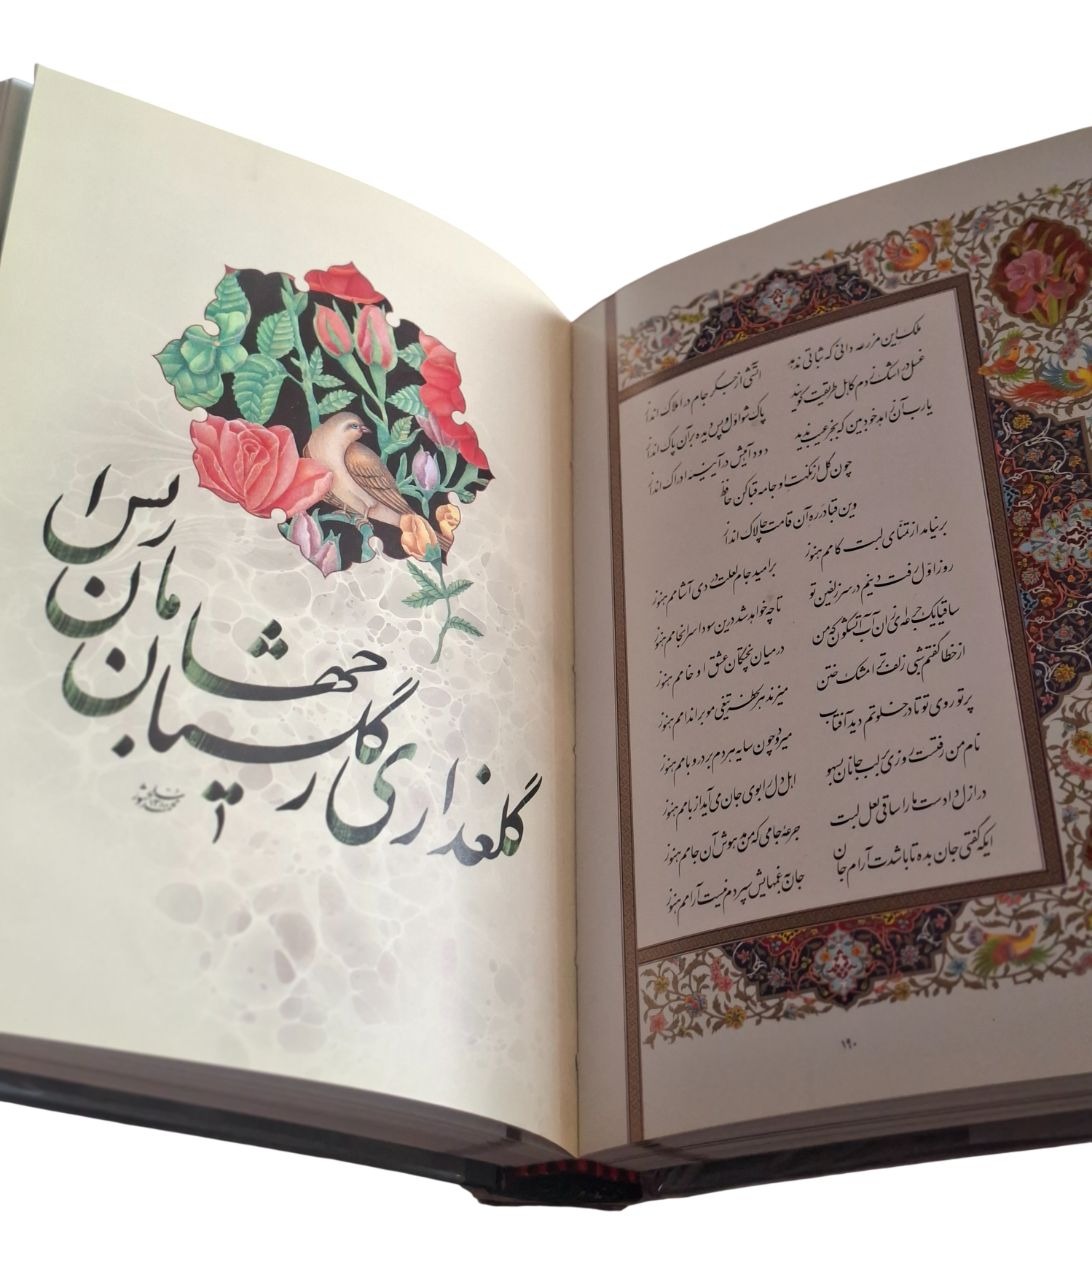 ملک این مزرعه دانی که ثباتی ندهد آتشی از جگر جام در املاک انداز
غسل در اشک زدم کاهل طریقت گویند پاک شو اول و پس دیده بر آن پاک انداز
یارب آن زاهد خودبین که بجز عیب ندید دود آهیش در آیینه ادراک انداز
چون گل از نکهت او جامه قبا کن حافظ
وین قبا در ره آن قامت چالاک انداز
بر نیامد از تمنّای لبت کامم هنوز بر امید جام لعلت دردی آشامم هنوز
روز اوّل رفت دینم در سر زلفین تو تا چه خواهد شد درین سودا سرانجامم هنوز
ساقیا یک جرعه‌ای زان آب آتشگون که من در میان پختگان عشق او خامم هنوز
از خطا گفتم شبی زلف ترا مشک ختن میزند هر لحظه تیغی مو بر اندامم هنوز
پرتو روی تو تا در خلوتم دید آفتاب میرود چون سایه هر دم بر در و بامم هنوز
نام من رفتست روزی بر لب جانان بسهو اهل دل را بوی جان می‌آید از نامم هنوز
در ازل دادست ما را ساقی لعل لبت جرعهٔ جامی که من مدهوش آن جامم هنوز
ایکه گفتی جان بده تا باشدت آرام جان جان به غمهایش سپردم نیست آرامم هنوز
۱۹۰
گلعذاری ز گلستان جهان ما را بس